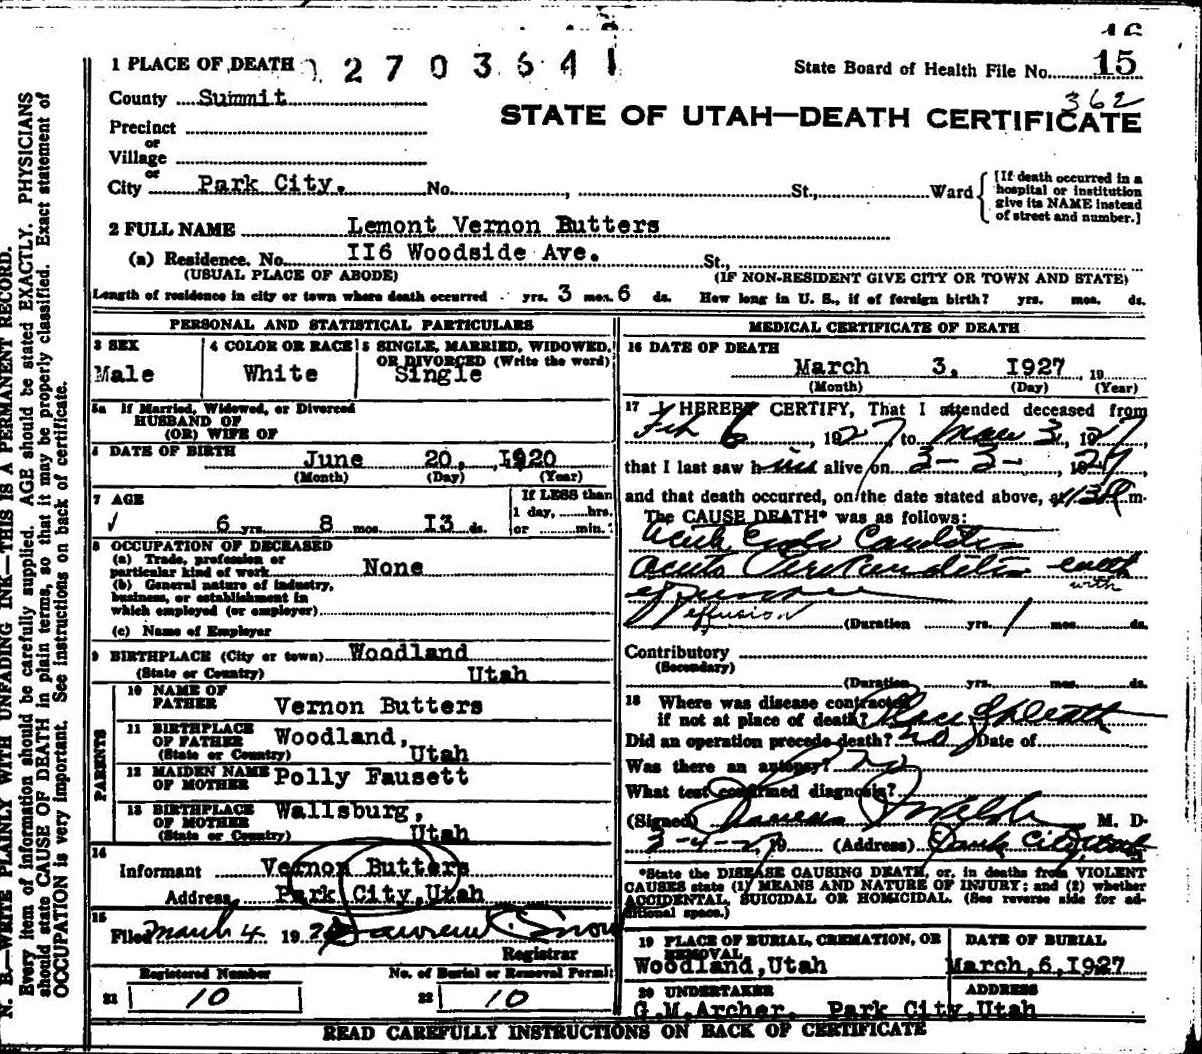 16
1 PLACE OF DEATH 2 7 0 3 6 4 1
State Board of Health File No. 15
County Summit
362
STATE OF UTAH—DEATH CERTIFICATE
Precinct
or
Village
or
City Park City. No. , St., Ward
[If death occurred in a
hospital or institution
give its NAME instead
of street and number.]
2 FULL NAME Lemont Vernon Butters
(a) Residence. No. II6 Woodside Ave. St.,
(USUAL PLACE OF ABODE) (IF NON-RESIDENT GIVE CITY OR TOWN AND STATE)
Length of residence in city or town where death occurred yrs. 3 mos. 6 ds. How long in U. S., if of foreign birth? yrs. mos. ds.
PERSONAL AND STATISTICAL PARTICULARS
3 SEX 4 COLOR OR RACE 5 SINGLE, MARRIED, WIDOWED,
OR DIVORCED (Write the word)
Male White Single
5a If Married, Widowed, or Divorced
HUSBAND OF
(OR) WIFE OF
6 DATE OF BIRTH
June 20, I920
(Month) (Day) (Year)
7 AGE
If LESS than
1 day, hrs.
or min.
6 yrs. 8 mos. I3 ds.
8 OCCUPATION OF DECEASED
(a) Trade, profession or
particular kind of work None
(b) General nature of industry,
business, or establishment in
which employed (or employer)
(c) Name of Employer
9 BIRTHPLACE (City or town) Woodland
(State or Country) Utah
PARENTS
10 NAME OF
FATHER Vernon Butters
11 BIRTHPLACE
OF FATHER Woodland,
(State or Country) Utah
12 MAIDEN NAME
OF MOTHER Polly Fausett
13 BIRTHPLACE
OF MOTHER Wallsburg,
(State or Country) Utah
14
Informant Vernon Butters
Address Park City, Utah
15
Filed March 4 192 Snow
Registrar
Registered Number No. of Burial or Removal Permit
21 10 22 10
MEDICAL CERTIFICATE OF DEATH
16 DATE OF DEATH
March 3, I927 19
(Month) (Day) (Year)
17 I HEREBY CERTIFY, That I attended deceased from
Feb 6, 1927 to Mar 3, 1927
that I last saw him alive on 3-3-, 1927
and that death occurred, on the date stated above, at m.
The CAUSE DEATH* was as follows:
Acute Endo Carditis
Acute Peri Carditis with
with
effusion
effusion
(Duration yrs. 1 mos. ds.
Contributory
(Secondary)
(Duration yrs. mos. ds.
18 Where was disease contracted
if not at place of death?
Did an operation precede death? no Date of
Was there an autopsy? no
What test confirmed diagnosis?
(Signed) M. D.
3-4-27 19 (Address) Park City, Utah
*State the DISEASE CAUSING DEATH, or, in deaths from VIOLENT
CAUSES state (1) MEANS AND NATURE OF INJURY; and (2) whether
ACCIDENTAL, SUICIDAL OR HOMICIDAL. (See reverse side for ad-
ditional space.)
19 PLACE OF BURIAL, CREMATION, OR
REMOVAL
DATE OF BURIAL
Woodland,Utah March,6,I927
20 UNDERTAKER ADDRESS
G.M.Archer. Park City,Utah
READ CAREFULLY INSTRUCTIONS ON BACK OF CERTIFICATE
N. B.—WRITE PLAINLY WITH UNFADING INK—THIS IS A PERMANENT RECORD.
Every item of information should be carefully supplied. AGE should be stated EXACTLY. PHYSICIANS
should state CAUSE OF DEATH in plain terms, so that it may be properly classified. Exact statement of
OCCUPATION is very important. See instructions on back of certificate.